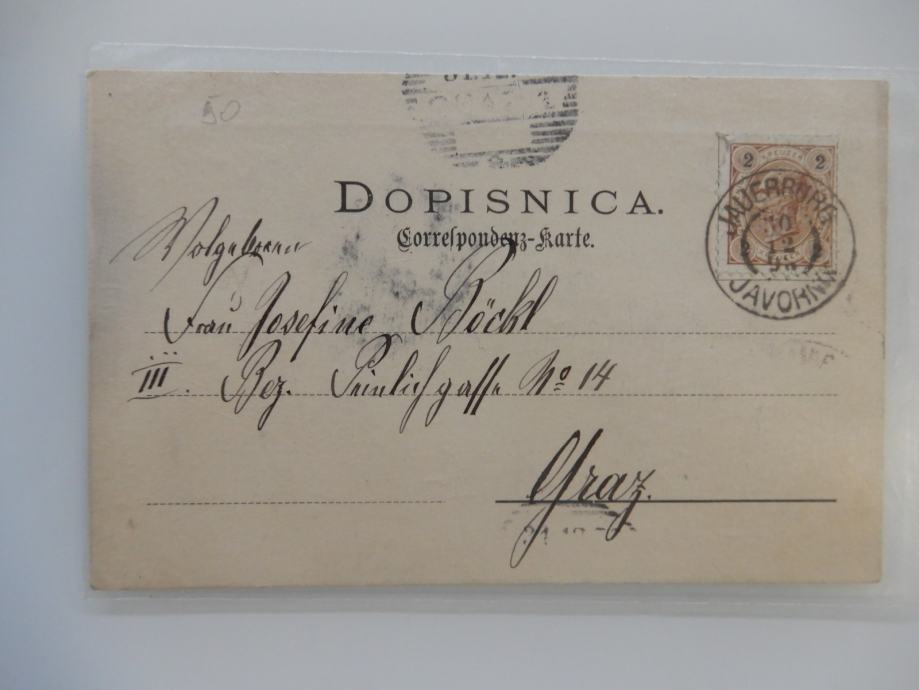 50
31.12.
GRAZ 1
DOPISNICA.
Correspondenz-Karte.
2 KREUZER 2
JAUERBURG
30
12
98
JAVORNIK
Wolgeboren
Frau Josefine Böckl
III. Bez. Peinlichgasse No 14
Graz.